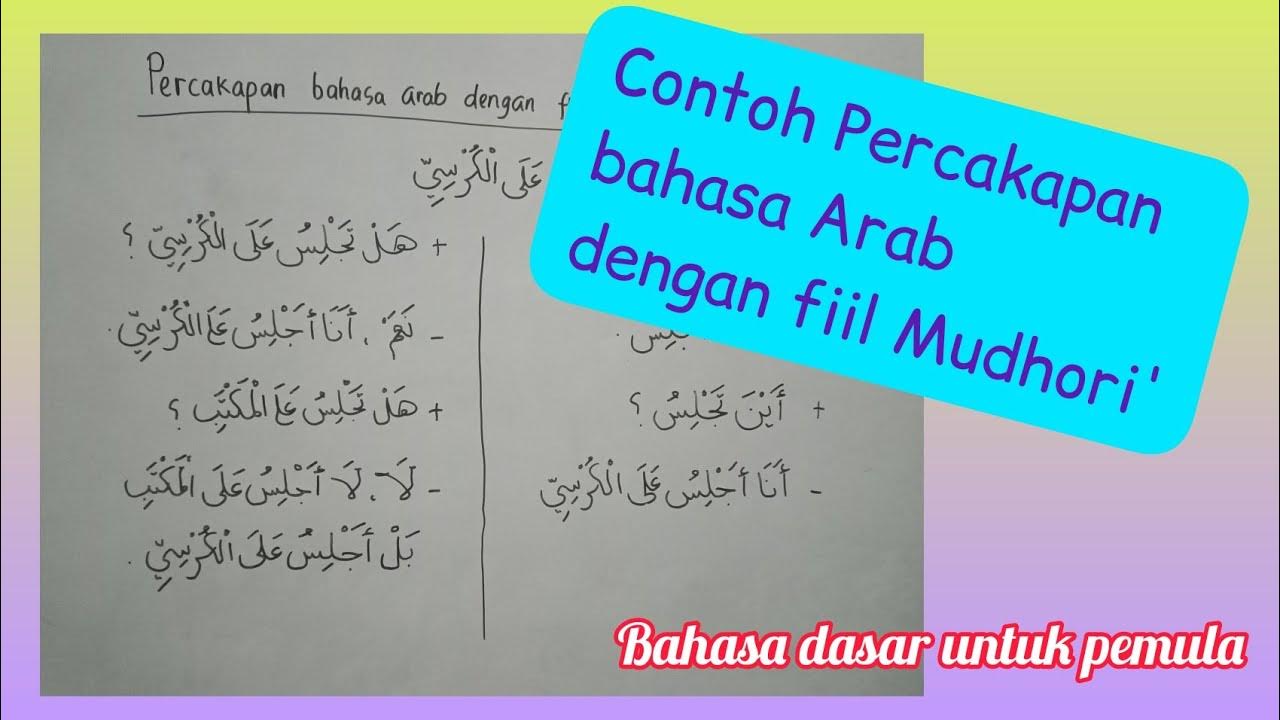 Percakapan bahasa arab dengan
عَلَى الْكُرْسِيِّ
Contoh Percakapan
bahasa Arab
dengan fiil Mudhori'
+ أَيْنَ تَجْلِسُ ؟
- أَنَا أَجْلِسُ عَلَى الْكُرْسِيِّ
+ هَلْ تَجْلِسُ عَلَى الْكُرْسِيِّ ؟
- نَعَمْ ، أَنَا أَجْلِسُ عَلَى الْكُرْسِيِّ .
+ هَلْ تَجْلِسُ عَلَى الْمَكْتَبِ ؟
- لَا ، لَا أَجْلِسُ عَلَى الْمَكْتَبِ
بَلْ أَجْلِسُ عَلَى الْكُرْسِيِّ .
Bahasa dasar untuk pemula